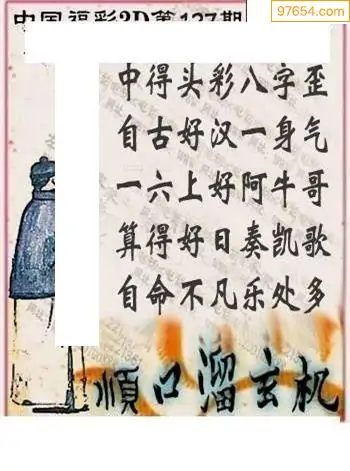 97654.com
中国福彩3D第127期
中得头彩八字歪
自古好汉一身气
一六上好阿牛哥
算得好日奏凯歌
自命不凡乐处多
順口溜玄机